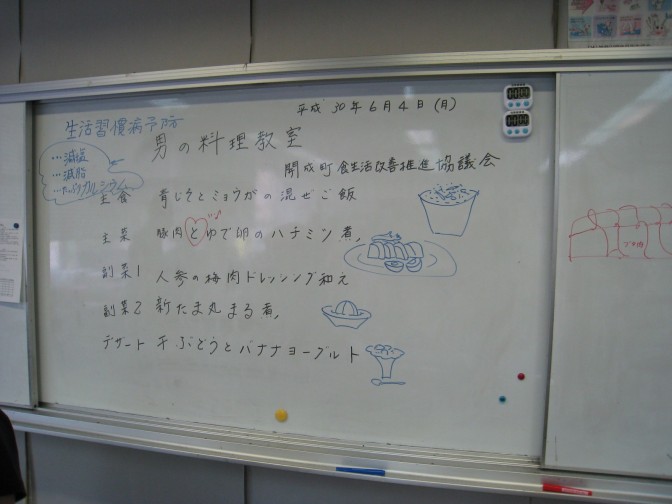 平成 30年 6月 4日 (月)
生活習慣病予防
男の料理教室
…減塩
…減脂
開成町 食生活改善推進協議会
主食 青じそとミョウガの混ぜご飯
主菜 豚肉とゆで卵のハチミツ煮
副菜1 人参の梅肉ドレッシング和え
副菜2 新たま丸まる煮
デザート 干ぶどうとバナナヨーグルト